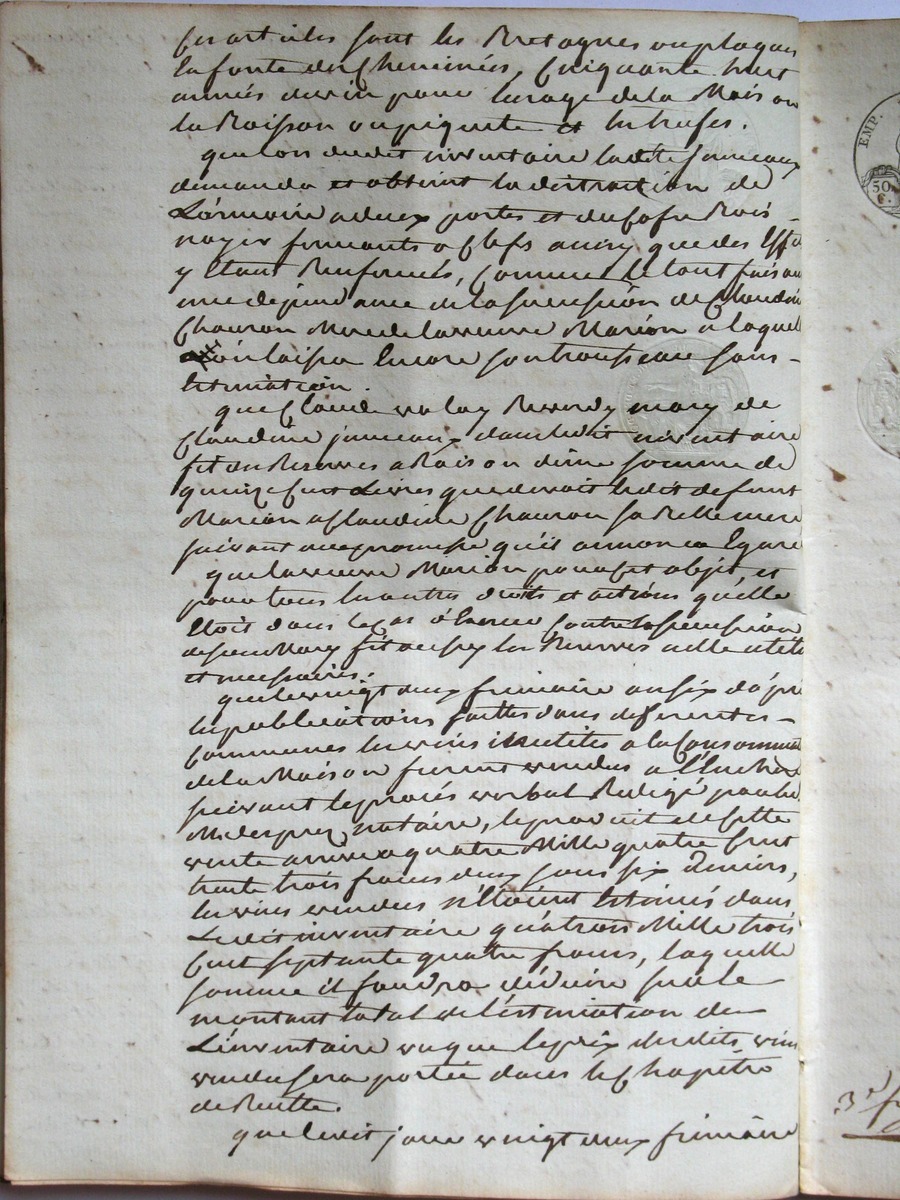 Ces articles sont les Bretagnes ou plaques
la fonte des Cheminées, Cinquante huit
années de vin pour l'usage de la Maison
la Boisson ou piquette et les
que lors dudit inventaire ladite Janneaux
demanda et obtint la distraction de
L'armoire a deux portes et du Cofre Bois
noyer fermants a Clefs ainsy que des Effets
y Etant Renfermés, Comme le tout faisant
de la succession de Claudine
Chauron Mere de la veuve Marion a laquelle
laissa Encore son trousseau sans
Estimation.
que Claude valay Reverdy mary de
Claudine janneaux dans ledit inventaire
fit des Reserves a Raison d'une somme de
quinze Cent Livres que devoit ledit defunt
Marion a Claudine Chauron sa Belle mere
suivant une promesse qu'il annonca Egaré
que la veuve Marion pour cet objet et
pour tous les autres droits et actions qu'elle
Etoit dans le cas d'Exercer Contre la succession
de feu son Mary fit aussy les Reserves utiles
et necessaires.
que le vingt deux frimaire an six d'après
les publications faittes dans differentes
Communes les vins inutiles a la Consommation
de la Maison furent vendus a l'Enchere
suivant le procès verbal Redigé par le
notaire, le produit de cette
vente arrive a quatre Mille quatre Cent
trente trois francs deux sous six Deniers,
les vins vendus n'Etoient Estimés dans
Ledit inventaire qu'a trois Mille trois
Cent septante quatre francs, laquelle
somme il faudra déduire sur le
montant total de l'estimation de
L'inventaire vu que le prix desdits vins
vendus sera portée dans le Chapitre
de Recette.
que ledit jour vingt deux frimaire
EMP.
50
C.
3e